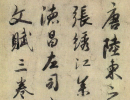 唐陸柬之
張綉江藁
德昌左司
文賦三卷